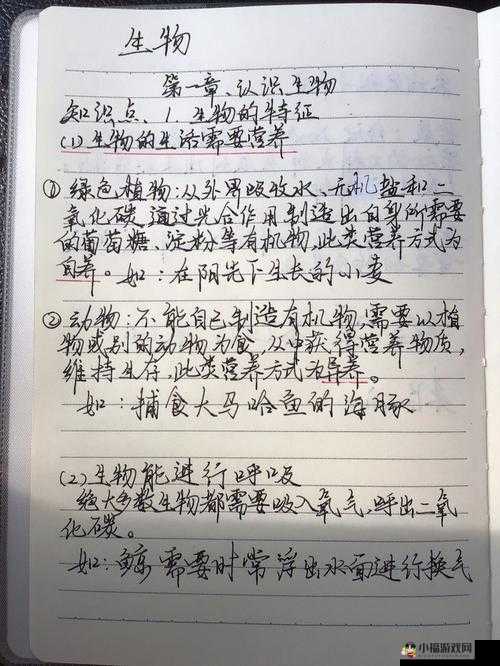 生物
第一章、认识生物
知识点、1.生物的特征
(1)生物的生活需要营养
①绿色植物:从外界吸收水、无机盐和二
氧化碳,通过光合作用制造出自身所需要
的葡萄糖、淀粉等有机物,此类营养方式为
自养。如:在阳光下生长的小麦
②动物:不能自己制造有机物,需要以植
物或别的动物为食,从中获得营养物质,
维持生存,此类营养方式为异养。
如:捕食大马哈鱼的海豚
(2)生物能进行呼吸
绝大多数生物都需要吸入氧气,呼出二氧
化碳。
如:鲸需要时常浮出水面进行换气
小福游戏网